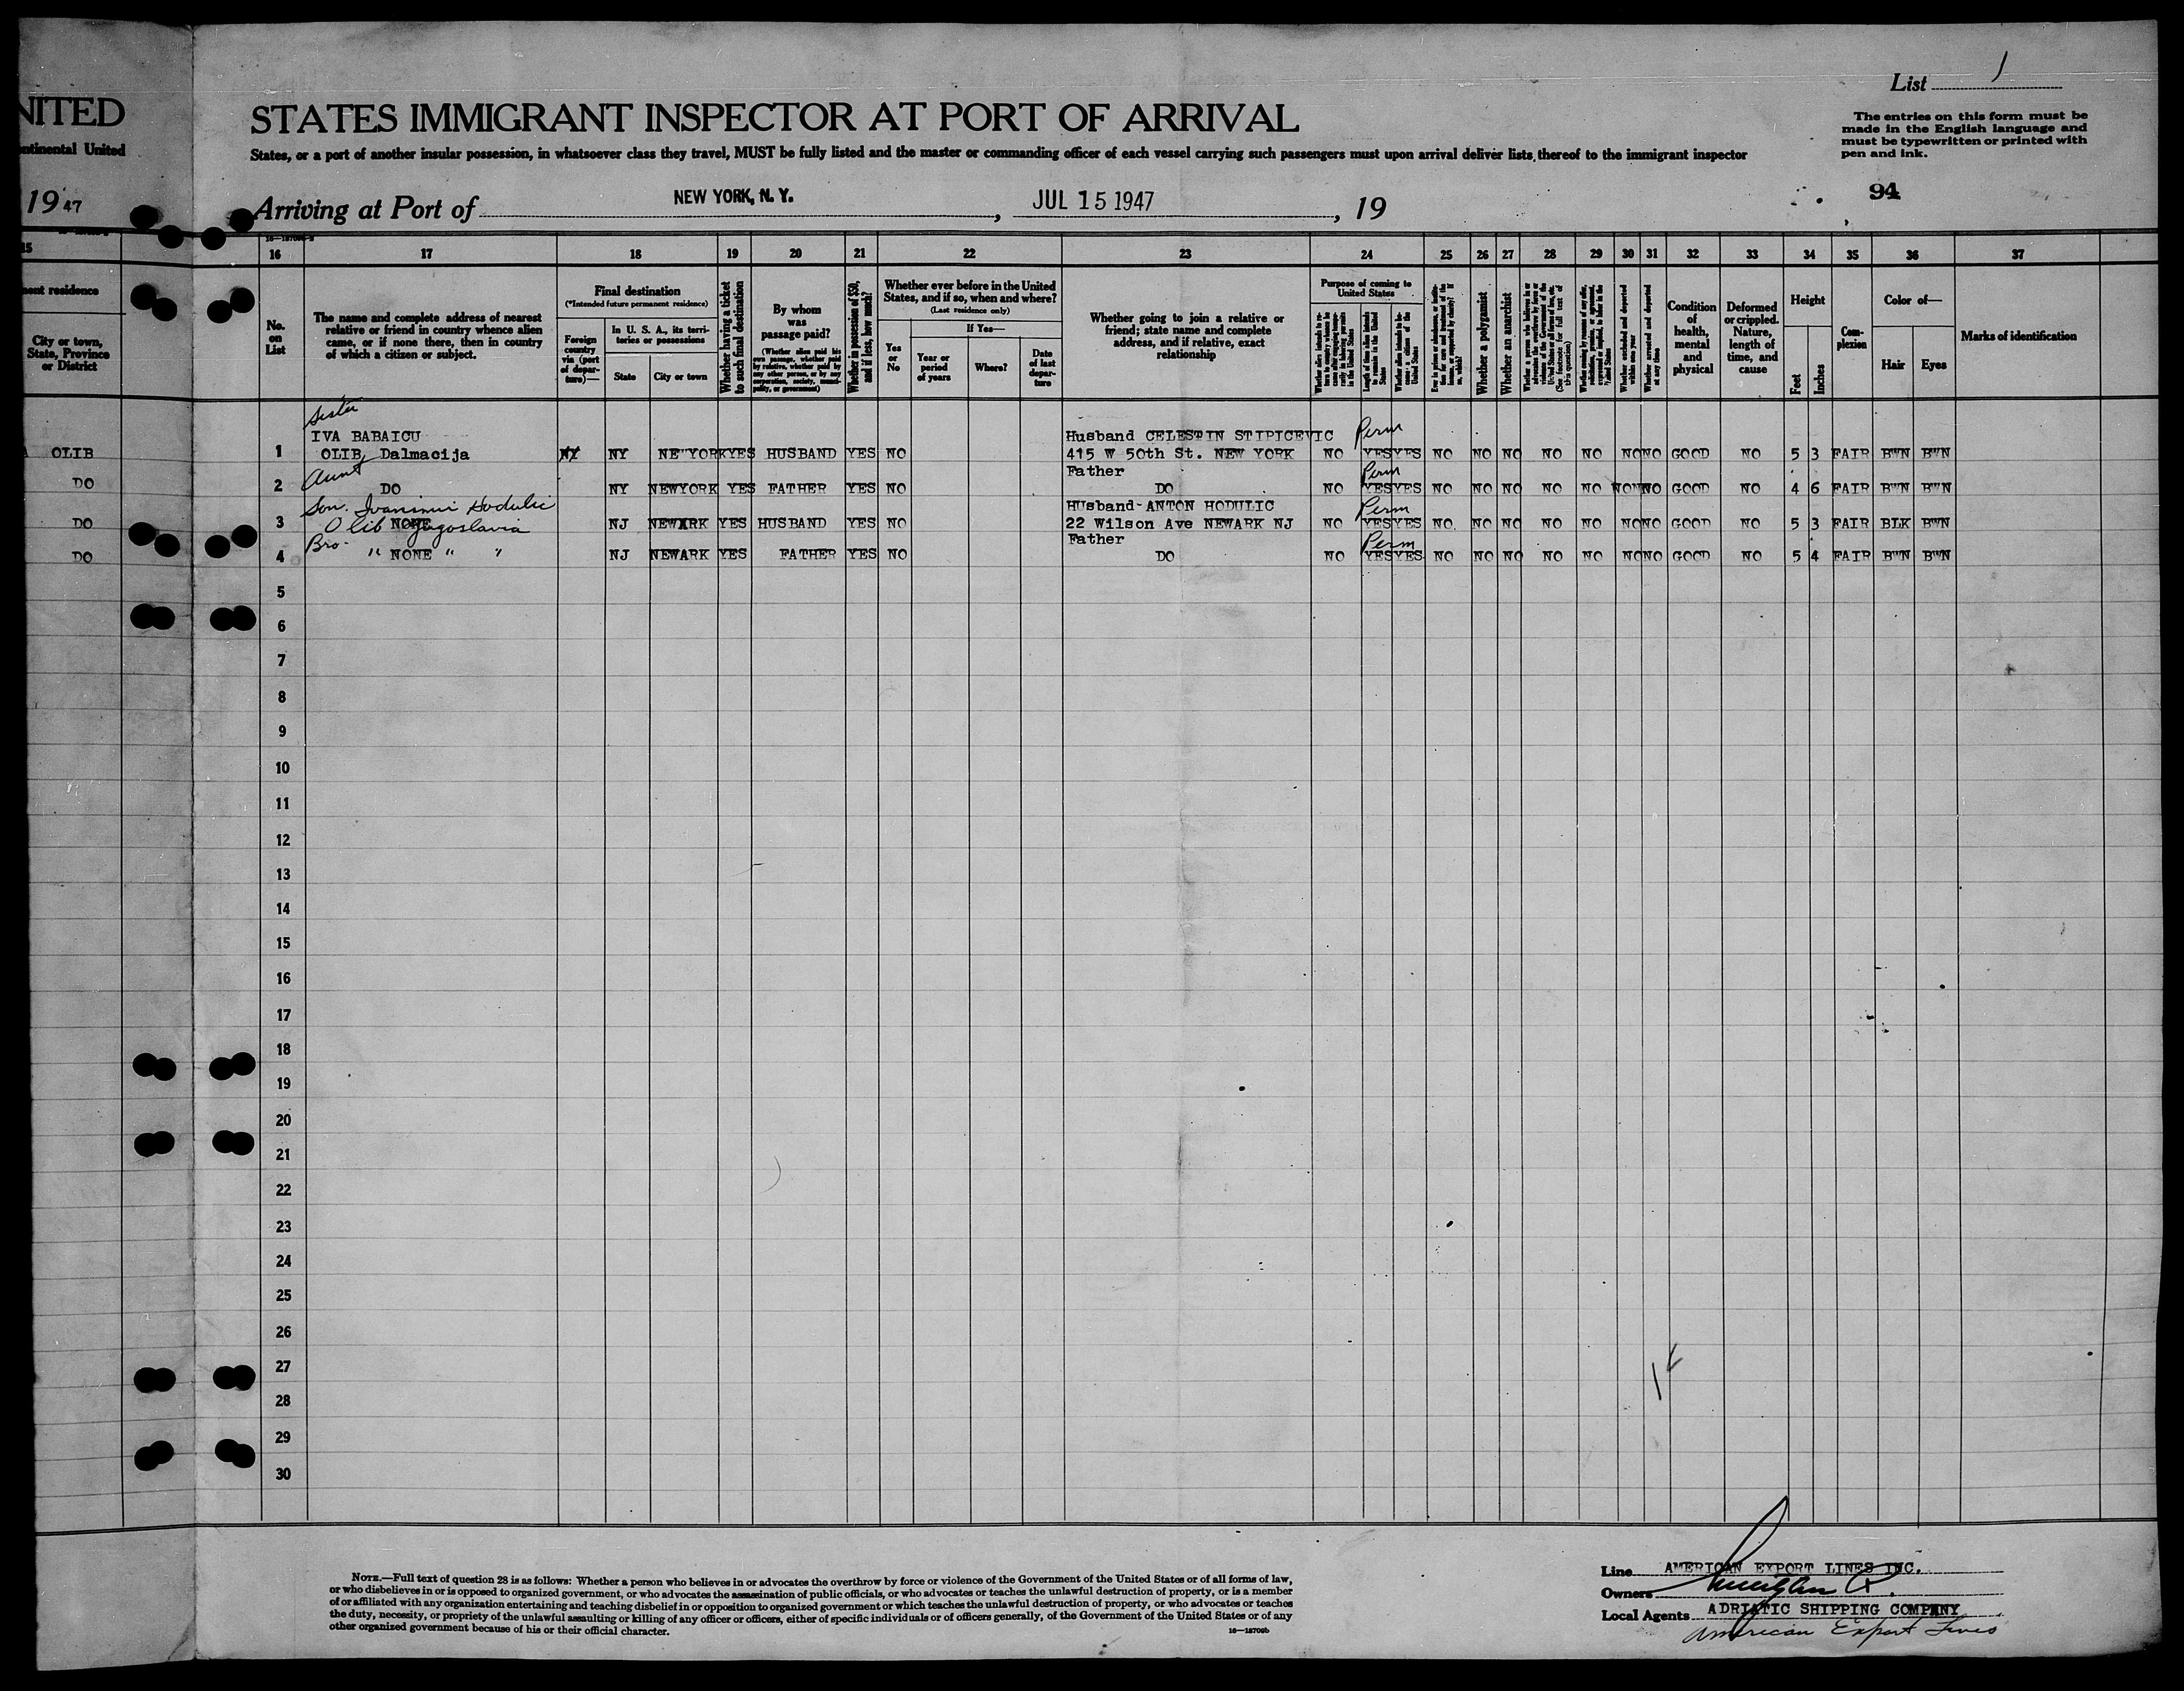 List 1
NITED
STATES IMMIGRANT INSPECTOR AT PORT OF ARRIVAL
The entries on this form must be
made in the English language and
must be typewritten or printed with
pen and ink.
ntinental United
States, or a port of another insular possession, in whatsoever class they travel, MUST be fully listed and the master or commanding officer of each vessel carrying such passengers must upon arrival deliver lists thereof to the immigrant inspector
94
19 47
Arriving at Port of NEW YORK, N. Y., JUL 15 1947, 19
15 16 17 18 19 20 21 22 23 24 25 26 27 28 29 30 31 32 33 34 35 36 37
nent residence
City or town,
State, Province
or District
No.
on
List
The name and complete address of nearest
relative or friend in country whence alien
came, or if none there, then in country
of which a citizen or subject.
Final destination
(*Intended future permanent residence)
Foreign
country
via (port
of depar-
ture)—
In U. S. A., its terri-
tories or possessions
State
City or town
Whether having a ticket
to such final destination
By whom
was
passage paid?
(Whether alien paid his
own passage, whether paid
by relative, whether paid by
any other person, or by any
corporation, society, munici-
pality, or government)
Whether in possession of $50,
and if less, how much?
Whether ever before in the United
States, and if so, when and where?
(Last residence only)
Yes
or
No
If Yes—
Year or
period
of years
Where?
Date
of last
depar-
ture
Whether going to join a relative or
friend; state name and complete
address, and if relative, exact
relationship
Purpose of coming to
United States
Length of time alien intends
to remain in the United
States
Whether alien intends to be-
come a citizen of the
United States
Whether a polygamist
Whether an anarchist
Whether excluded and deported
within one year
Whether arrested and deported
at any time
Condition
of
health,
mental
and
physical
Deformed
or crippled.
Nature,
length of
time, and
cause
Height
Feet
Inches
Com-
plexion
Color of—
Hair
Eyes
Marks of identification
Sister
IVA BABAICU Husband CELESTIN STIPICEVIC Perm
OLIB 1 OLIB, Dalmacija NY NY NEWYORK YES HUSBAND YES NO 415 W 50th St. NEW YORK NO YES YES NO NO NO NO NO NO NO GOOD NO 5 3 FAIR BWN BWN
Aunt Father Perm
DO 2 DO NY NEWYORK YES FATHER YES NO DO NO YES YES NO NO NO NO NO NO NO GOOD NO 4 6 FAIR BWN BWN
Son. Hodulic HUsband-ANTON HODULIC Perm
DO 3 Olib NONE Yugoslavia NJ NEWARK YES HUSBAND YES NO 22 Wilson Ave NEWARK NJ NO YES YES NO. NO NO NO NO NO NO GOOD NO 5 3 FAIR BLK BWN
Bro- Father Perm
DO 4 " NONE " " NJ NEWARK YES FATHER YES NO DO NO YES YES NO NO NO NO NO NO NO GOOD NO 5 4 FAIR BWN BWN
5
6
7
8
9
10
11
12
13
14
15
16
17
18
19
20
21
22
23
24
25
26
27
28
29
30
NOTE.—Full text of question 28 is as follows: Whether a person who believes in or advocates the overthrow by force or violence of the Government of the United States or of all forms of law,
or who disbelieves in or is opposed to organized government, or who advocates the assassination of public officials, or who advocates or teaches the unlawful destruction of property, or is a member
of or affiliated with any organization entertaining and teaching disbelief in or opposition to organized government or which teaches the unlawful destruction of property, or who advocates or teaches
the duty, necessity, or propriety of the unlawful assaulting or killing of any officer or officers, either of specific individuals or of officers generally, of the Government of the United States or of any
other organized government because of his or their official character.
16—18709b
Line AMERICAN EXPORT LINES INC.
Owners
Local Agents ADRIATIC SHIPPING COMPANY
American Export Lines